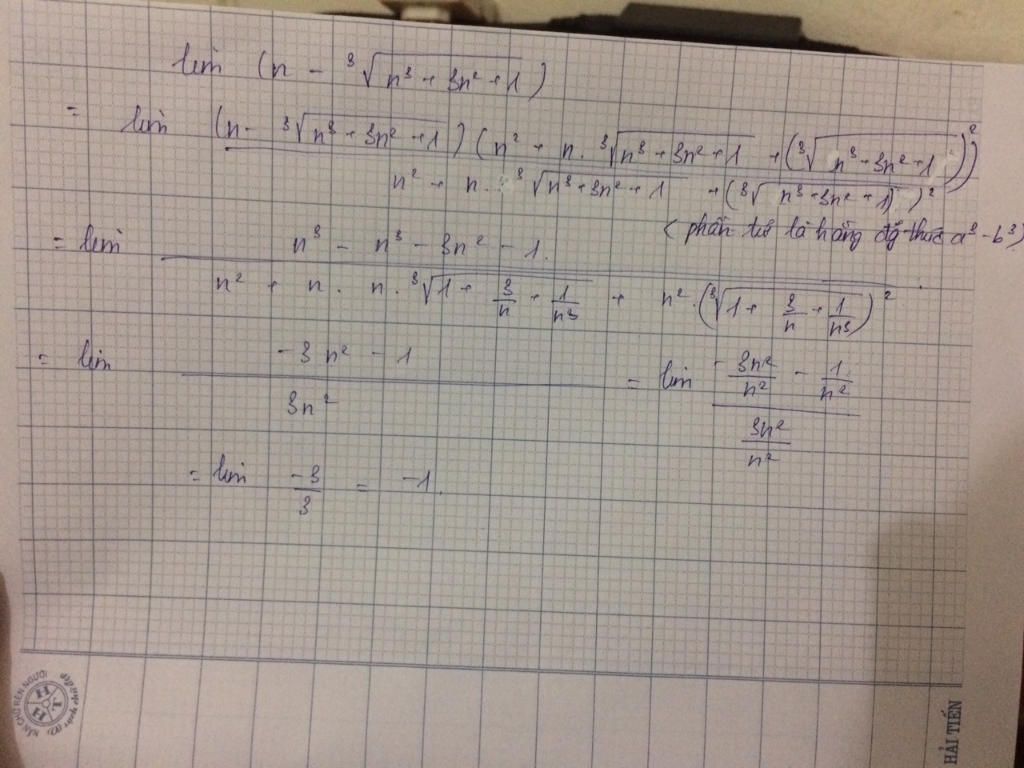 lim (n - ³√(n³ + 3n² + 1))
= lim (n - ³√(n³ + 3n² + 1))(n² + n. ³√(n³ + 3n² + 1) + (³√(n³ + 3n² + 1))²)
n² + n. ³√(n³ + 3n² + 1) + (³√(n³ + 3n² + 1))²
(phần tử là hằng đg thức a³ - b³)
= lim n³ - n³ - 3n² - 1.
n² + n. n. ³√(1 + 3/n + 1/n³) + n².(³√(1 + 3/n + 1/n³))²
= lim (-3n² - 1)/(3n²) = lim (-3n²/n² - 1/n²)/(3n²/n²)
= lim -3/3 = -1.
HẢI TIẾN